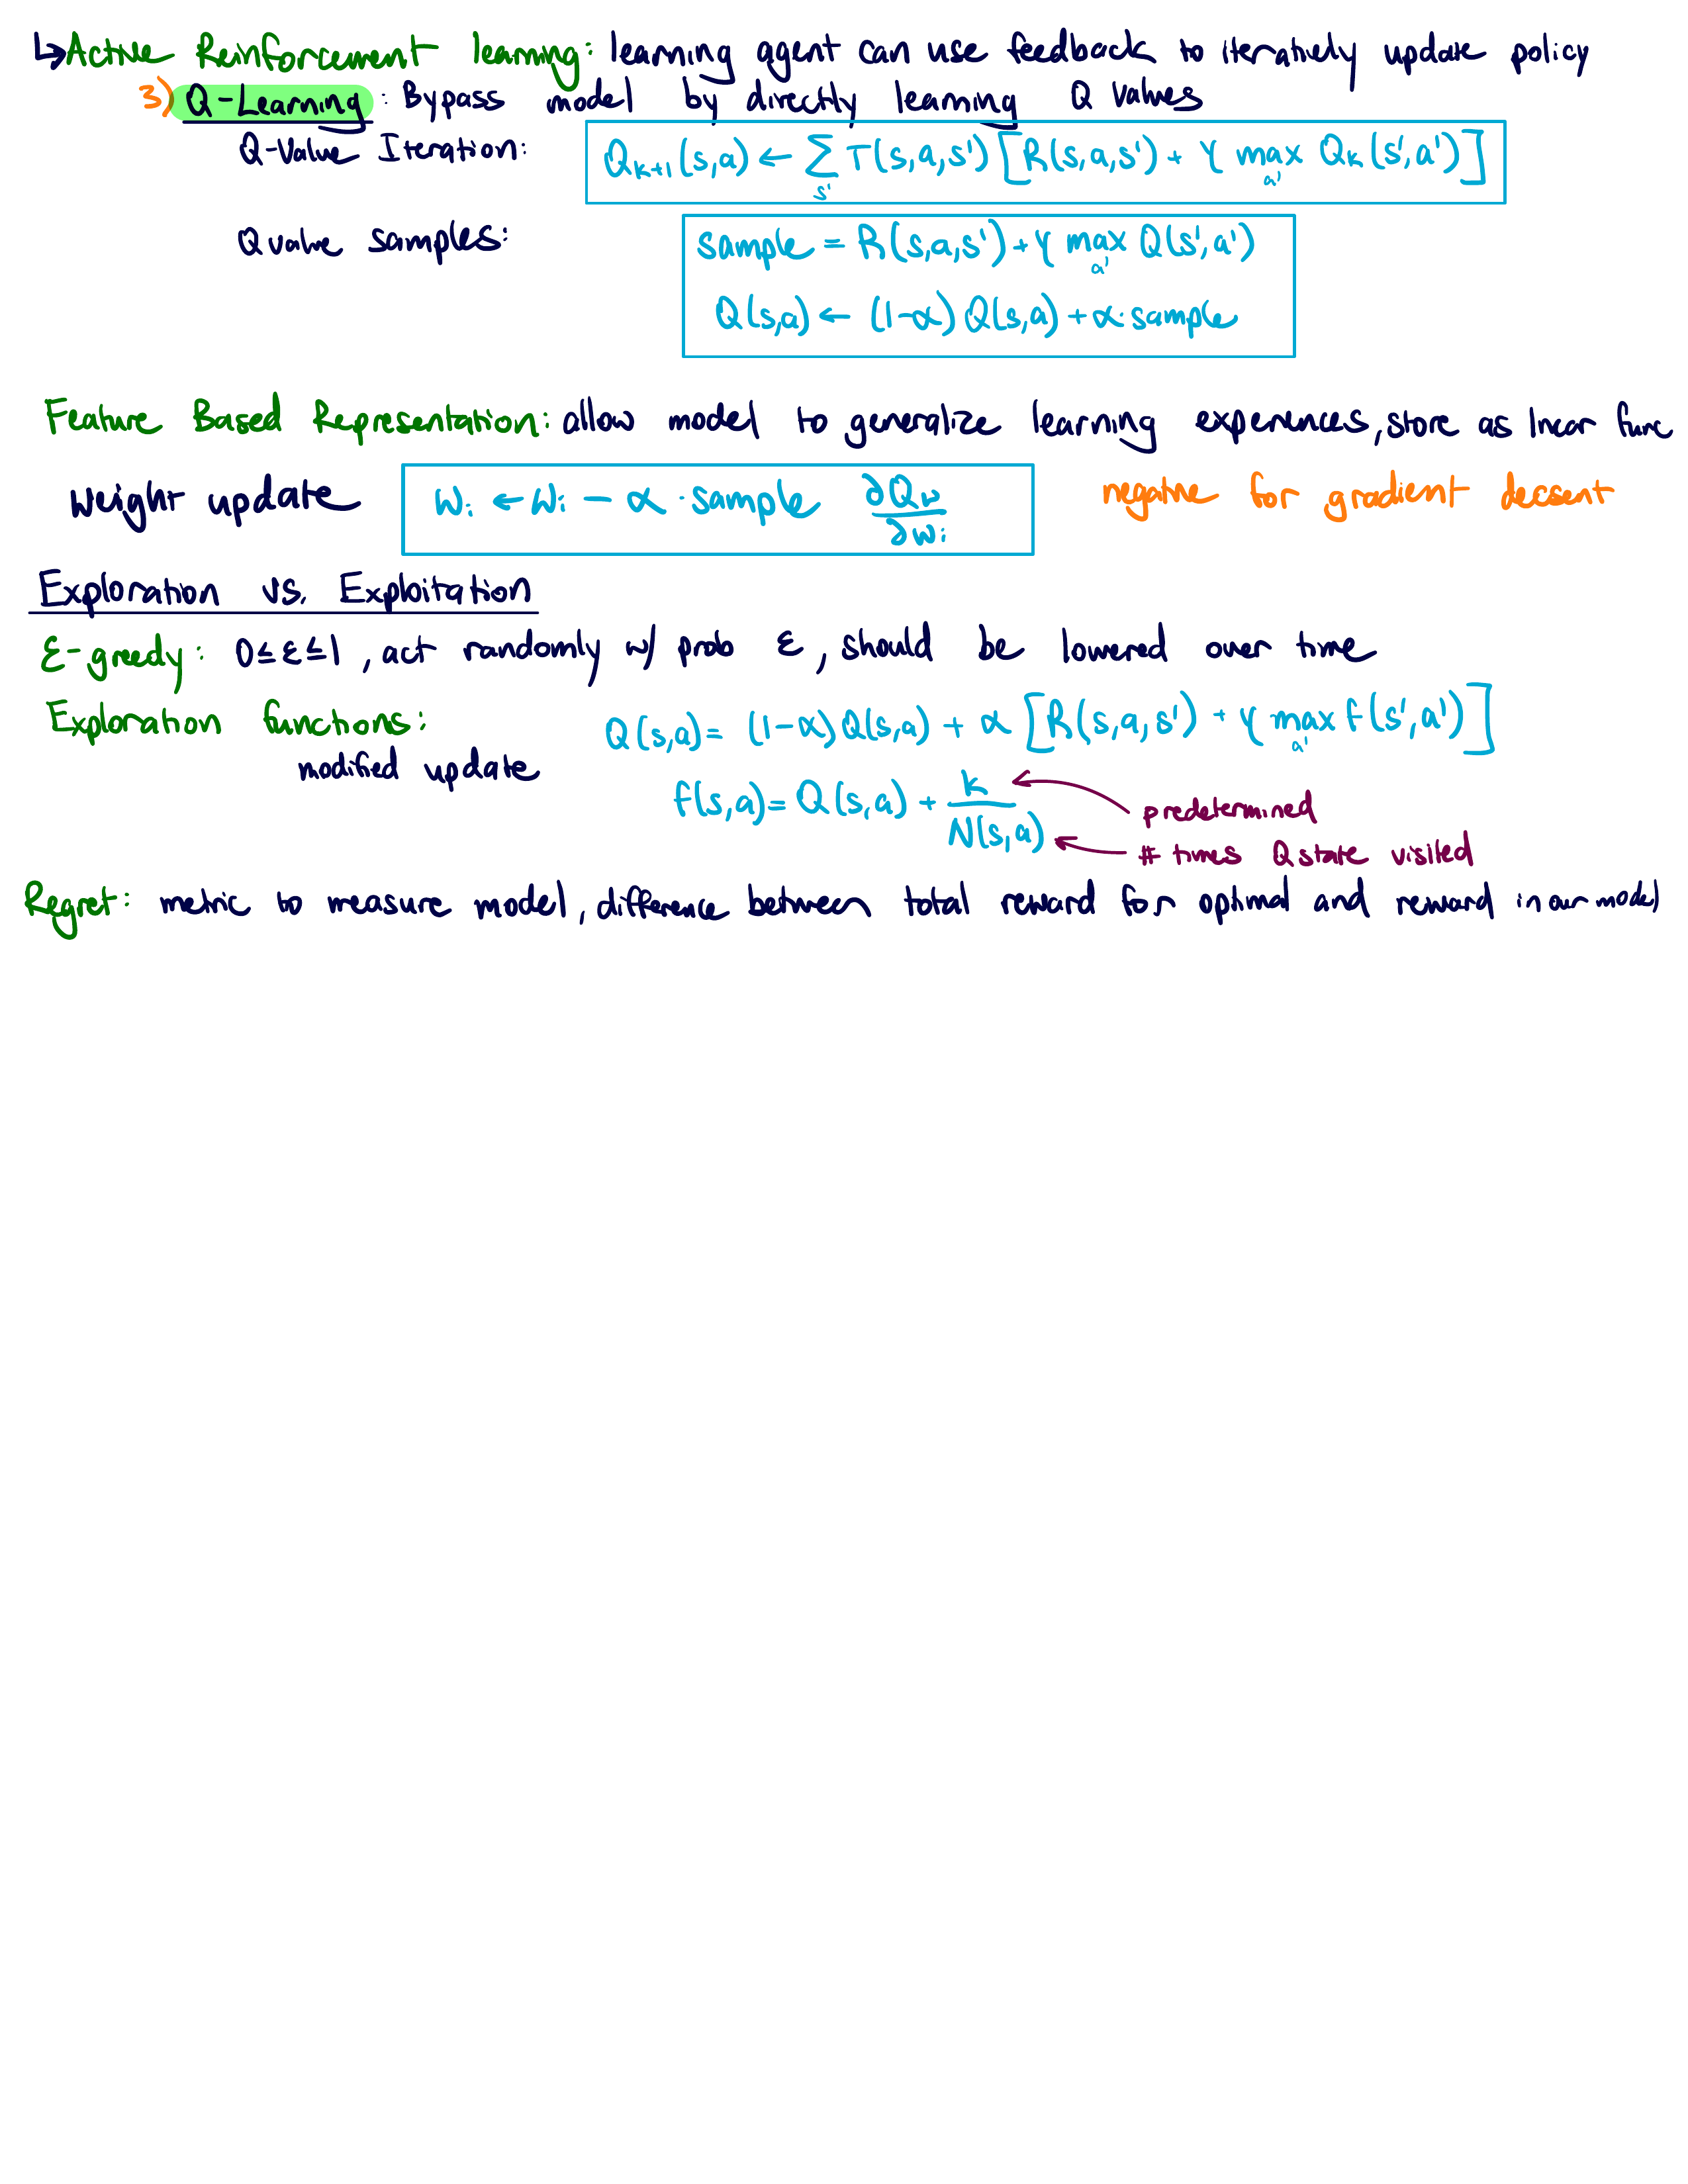 ↳Active Reinforcement learning: learning agent can use feedback to iteratively update policy
3) Q-Learning: Bypass model by directly learning Q values
Q-Value Iteration: Qₖ₊₁(s,a) ← Σ_s' T(s,a,s')[R(s,a,s') + γ max_a' Qₖ(s',a')]
Q value samples: sample = R(s,a,s') + γ max_a' Q(s',a')
Q(s,a) ← (1-α) Q(s,a) + α·sample
Feature Based Representation: allow model to generalize learning experiences, store as linear func
Weight update wᵢ ← wᵢ - α · sample ∂Q_w/∂wᵢ negative for gradient decsent
Exploration vs. Exploitation
ε-greedy: 0≤ε≤1, act randomly w/ prob ε, should be lowered over time
Exploration functions: Q(s,a) = (1-α)Q(s,a) + α[R(s,a,s') + γ max_a' f(s',a')]
modified update
f(s,a) = Q(s,a) + k/N(s,a)
predetermined
# times Q state visited
Regret: metric to measure model, difference between total reward for optimal and reward in our model